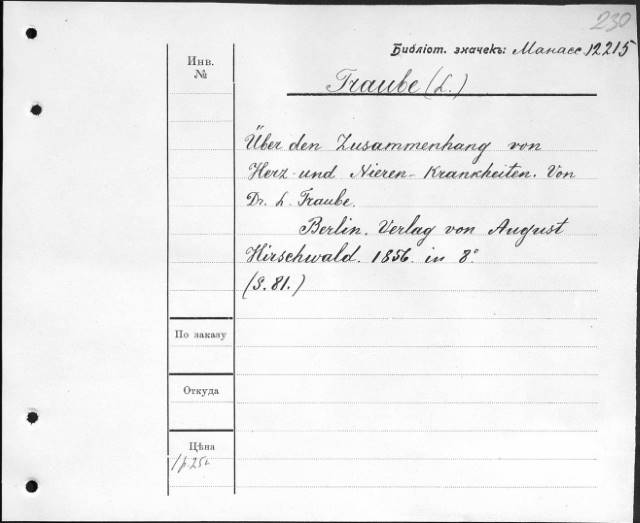 230
Библіот. значекъ: Манасс. 12215
Инв. №
Traube (L.)
Über den Zusammenhang von
Herz- und Nieren-Krankheiten. Von
Dr. L. Traube.
Berlin. Verlag von August
Hirschwald. 1856. in 8°
(S. 81.)
По заказу
Откуда
Цѣна
1 р. 25 к